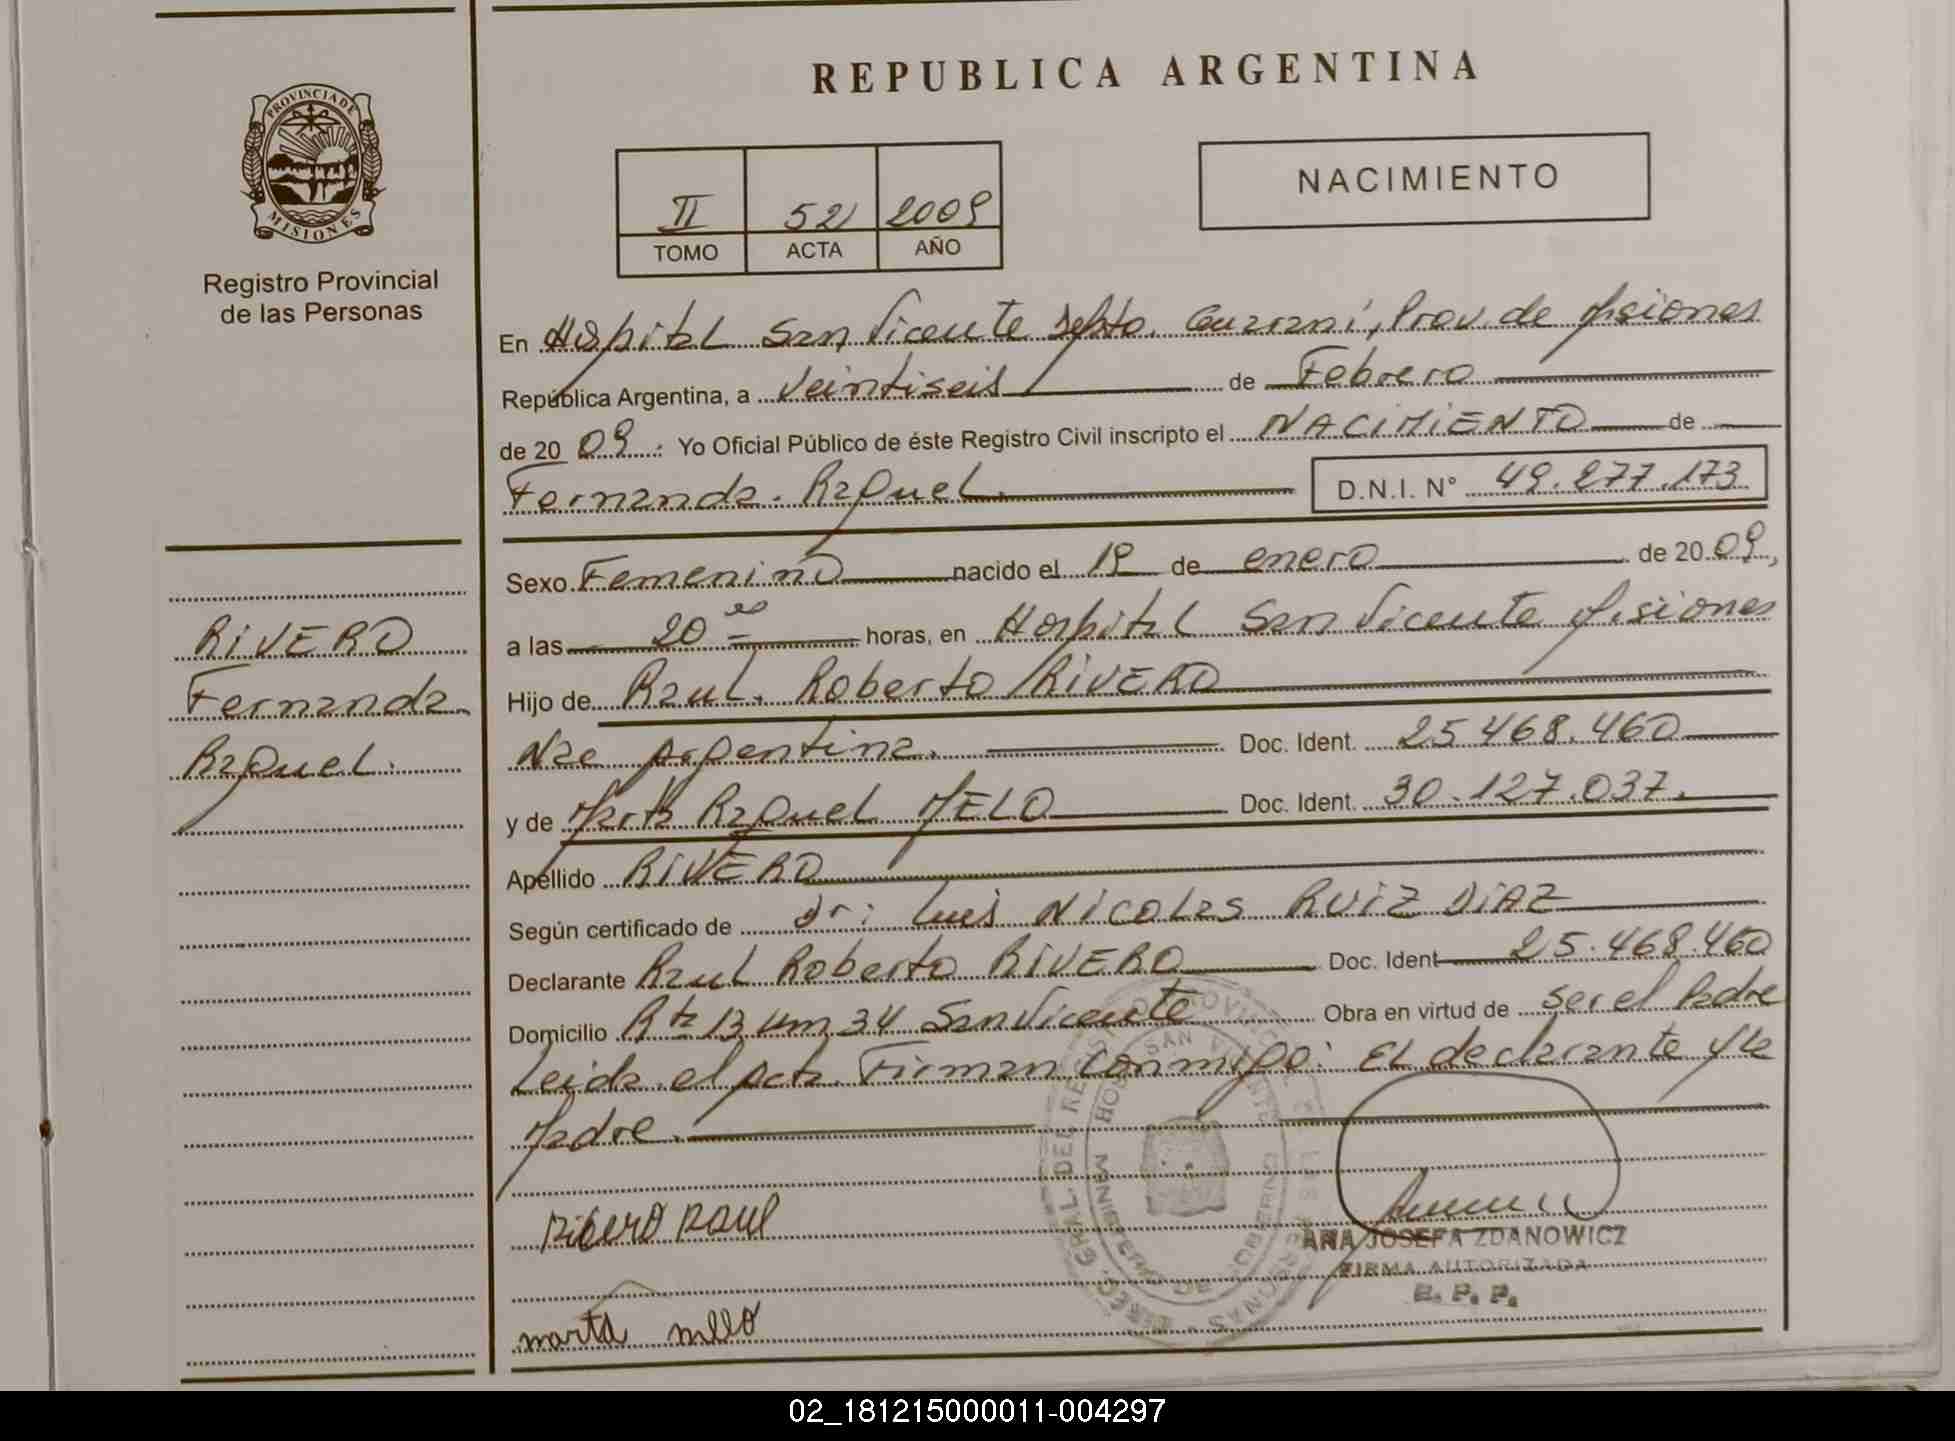 PROVINCIA DE
MISIONES
Registro Provincial
de las Personas
RIVERO
Fernanda
Raquel.
REPUBLICA ARGENTINA
II 52 2009
TOMO ACTA AÑO
NACIMIENTO
En Hospital San Vicente Depto. Guaraní, Prov. de Misiones
República Argentina, a veintiseis de Febrero
de 20 09. Yo Oficial Público de éste Registro Civil inscripto el NACIMIENTO de
Fernanda. Raquel. D.N.I. N° 49.277.173
Sexo Femenino nacido el 19 de enero de 20 09,
a las 20 horas, en Hospital San Vicente Misiones
Hijo de Raul. Roberto RIVERO
Nac Argentina. Doc. Ident. 25.468.460
y de Marta Raquel MELO Doc. Ident. 30.127.037.
Apellido RIVERO
Según certificado de Dr: Luis Nicolas RUIZ DIAZ
Declarante Raul Roberto RIVERO Doc. Ident 25.468.460
Domicilio Rta 13 Km 34 San Vicente Obra en virtud de ser el Padre
Leida el acta. Firman conmigo: El declarante y la
Madre.
Ribero Raul
ANA JOSEFA ZDANOWICZ
FIRMA AUTORIZADA
R. P. P.
marta mello
02_181215000011-004297